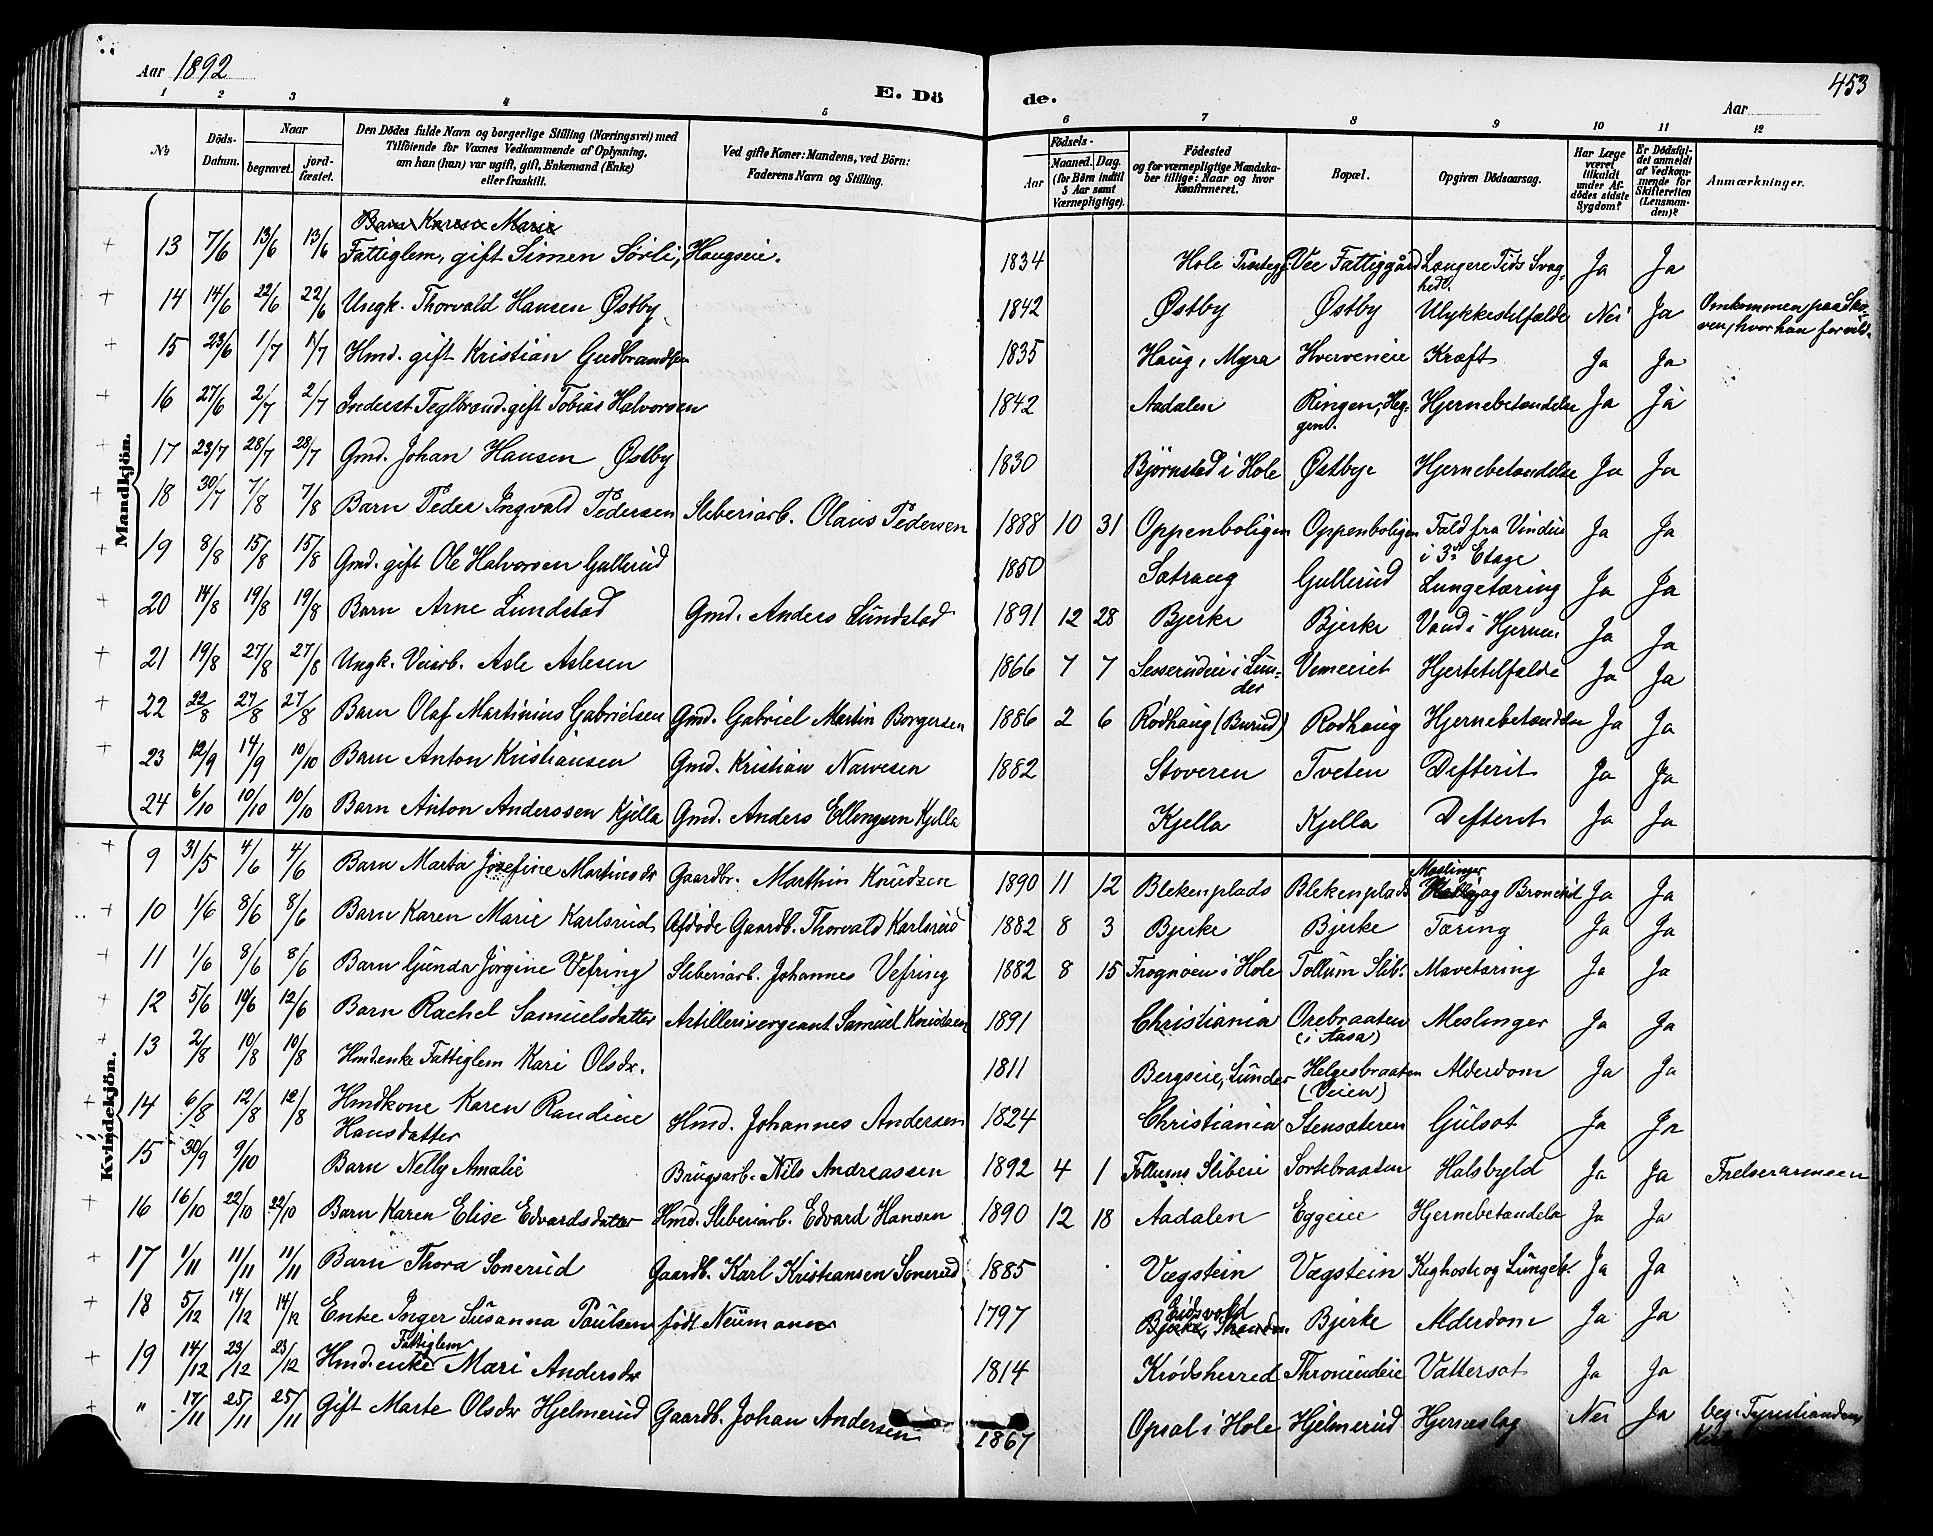 Aar 1892
E. Dö
de.
Aar
453
1 2 3 4 5 6 7 8 9 10 11 12
№
Döds-Datum.
Naar
begravet.
jord-fæstet.
Den Dödes fulde Navn og borgerlige Stilling (Næringsvei) med
Tilföiende for Voxnes Vedkommende af Oplysning,
om han (hun) var ugift, gift, Enkemand (Enke)
eller fraskilt.
Ved gifte Koner: Mandens, ved Börn:
Faderens Navn og Stilling.
Födsels-
Aar
Maaned. Dag.
(for Börn indtil
5 Aar samt
Værnepligtige).
Födested
og for værnepligtige Mandska-
ber tillige: Naar og hvor
konfirmeret.
Bopæl.
Opgiven Dödsaarsag.
Har Læge
været
tilkaldt
under Af-
dödes sidste
Sygdom?
Er Dödsfal-
det anmeldt
af Vedkom-
mende for
Skifteretten
(Lensman-
den)?
Anmærkninger.
Mandkjön.
Barn Karen Marie
13 7/6 13/6 13/6 Fattiglem, gift Simen Sörli, Haugseie. 1834 Hole Vee Fattiggård Længere Tids Svag-
hed. Ja Ja
14 14/6 22/6 22/6 Ungk. Thorvald Hansen Østby 1842 Østby Østby Ulykkestilfælde Nei Ja Omkommen paa Sko-
ven, hvor han forvild-
15 23/6 1/7 1/7 Hmd. gift Kristian Gudbrandsen 1835 Haug, Myra Hverveneie Kræft Ja Ja
16 27/6 2/7 2/7 Inderst Teglbrænd. gift Tobias Halvorsen 1842 Aadalen Ringen, Heg-
gen. Hjernebetændelse Ja Ja
17 23/7 28/7 28/7 Gmd. Johan Hansen Østby 1830 Björnstad i Hole Østbye Hjernebetændelse Ja Ja
18 30/7 7/8 7/8 Barn Peder Ingvald Pedersen Sliberiarb. Olaus Pedersen 1888 10 31 Oppenboligen Oppenboligen Fald fra Vindu
i 3die Etage Ja Ja
19 8/8 15/8 15/8 Gmd. gift Ole Halvorsen Gullerud 1850 Satrang Gullerud Lungetæring Ja Ja
20 14/8 19/8 19/8 Barn Arne Lundstad Gmd. Anders Lundstad 1891 12 28 Bjerke Bjerke Vand i Hjernen Ja Ja
21 19/8 27/8 27/8 Ungk. Veiarb. Asle Aslesen 1866 7 7 Sesserudeie i Lun-
der Vemeeiet Hjertetilfælde Ja Ja
22 22/8 27/8 27/8 Barn Olaf Martinius Gabrielsen Gmd. Gabriel Martin Borgersen 1886 2 6 Rödhaug (Burud) Rodhaug Hjernebetændelse Ja Ja
23 12/9 14/9 10/10 Barn Anton Kristiansen Gmd. Kristian Narvesen 1882 Stoveren Tveten Defterit Ja Ja
24 6/10 10/10 10/10 Barn Anton Anderssen Kjella Gmd. Anders Ellingsen Kjella Kjella Kjella Defterit Ja Ja
Kvindekjön.
9 31/5 4/6 4/6 Barn Marta Josefine Martinsdr Gaardbr. Marthin Knudsen 1890 11 12 Blekenplads Blekenplads Meslinger og Bronchit Ja Ja
10 1/6 8/6 8/6 Barn Karen Marie Karlsrud Afdöde Gaardb. Thorvald Karlsrud 1882 8 3 Bjerke Bjerke Tæring Ja Ja
11 1/6 8/6 8/6 Barn Gunda Jörgine Vefring Sliberiarb. Johannes Vefring 1882 8 15 Frognöen i Hole Follum Slib. Mavetæring Ja Ja
12 5/6 19/6 12/6 Barn Rachel Samuelsdatter Artillerisergeant Samuel Knudsen 1891 Christiania Orebraaten
(i Aasa) Meslinger Ja Ja
13 2/8 10/8 10/8 Hmd.enke Fattiglem Kari Olsdr. 1811 Bergseie, Lunder Helgesbraaten
(Veien) Alderdom Ja Ja
14 6/8 12/8 12/8 Hmdkone Karen Randine
Hansdatter Hmd. Johannes Andersen 1824 Christiania Stensæteren Gulsot Ja Ja
15 30/9 9/10 Barn Nelly Amalie Brugsarb. Nils Andreassen 1892 4 1 Follums Sliberi Sortebraaten Halsbyld Ja Ja Frelserarmeen
16 16/10 22/10 22/10 Barn Karen Elise Edvardsdatter Hmd. Sliberiarb. Edvard Hansen 1890 12 18 Aadalen Eggeeie Hjernebetændelse Ja Ja
17 1/11 11/11 11/11 Barn Thora Sonerud Gaardb. Karl Kristiansen Sonerud 1885 Vægstein Vægstein Kighoste og Lungeb. Ja Ja
18 5/12 14/12 14/12 Enke Inger Susanna Paulsen födt Neümann 1797 Eidsvold
Bjerke Bjerke Alderdom Ja Ja
19 14/12 23/12 23/12 Hmd.enke Fattiglem Mari Andersdr 1814 Krödsherred Thronrudeie Vattersot Ja Ja
" 17/11 25/11 25/11 Gift Marte Olsdr Hjelmerud Gaardb. Johan Andersen 1867 Opsal i Hole Hjelmerud Hjerneslag Nei Ja beg. Tyristrandens